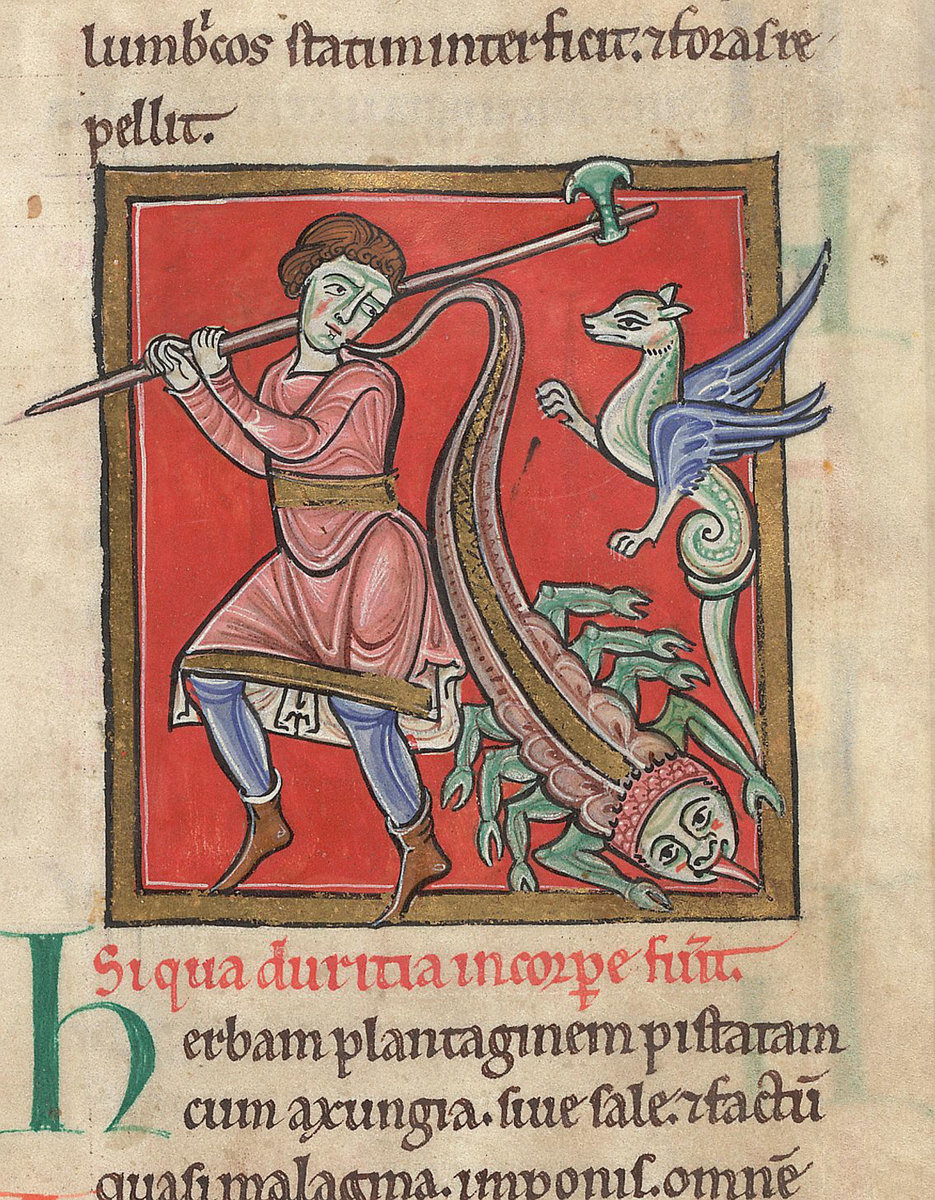 lumb'cos statim interficit. ⁊ foras re
pellit.
Si qua duritia in corꝑe fuīt.
herbam plantaginem pistatam
cum axungia. siue sale. ⁊ factū
quasi malagma. imponis. omnē